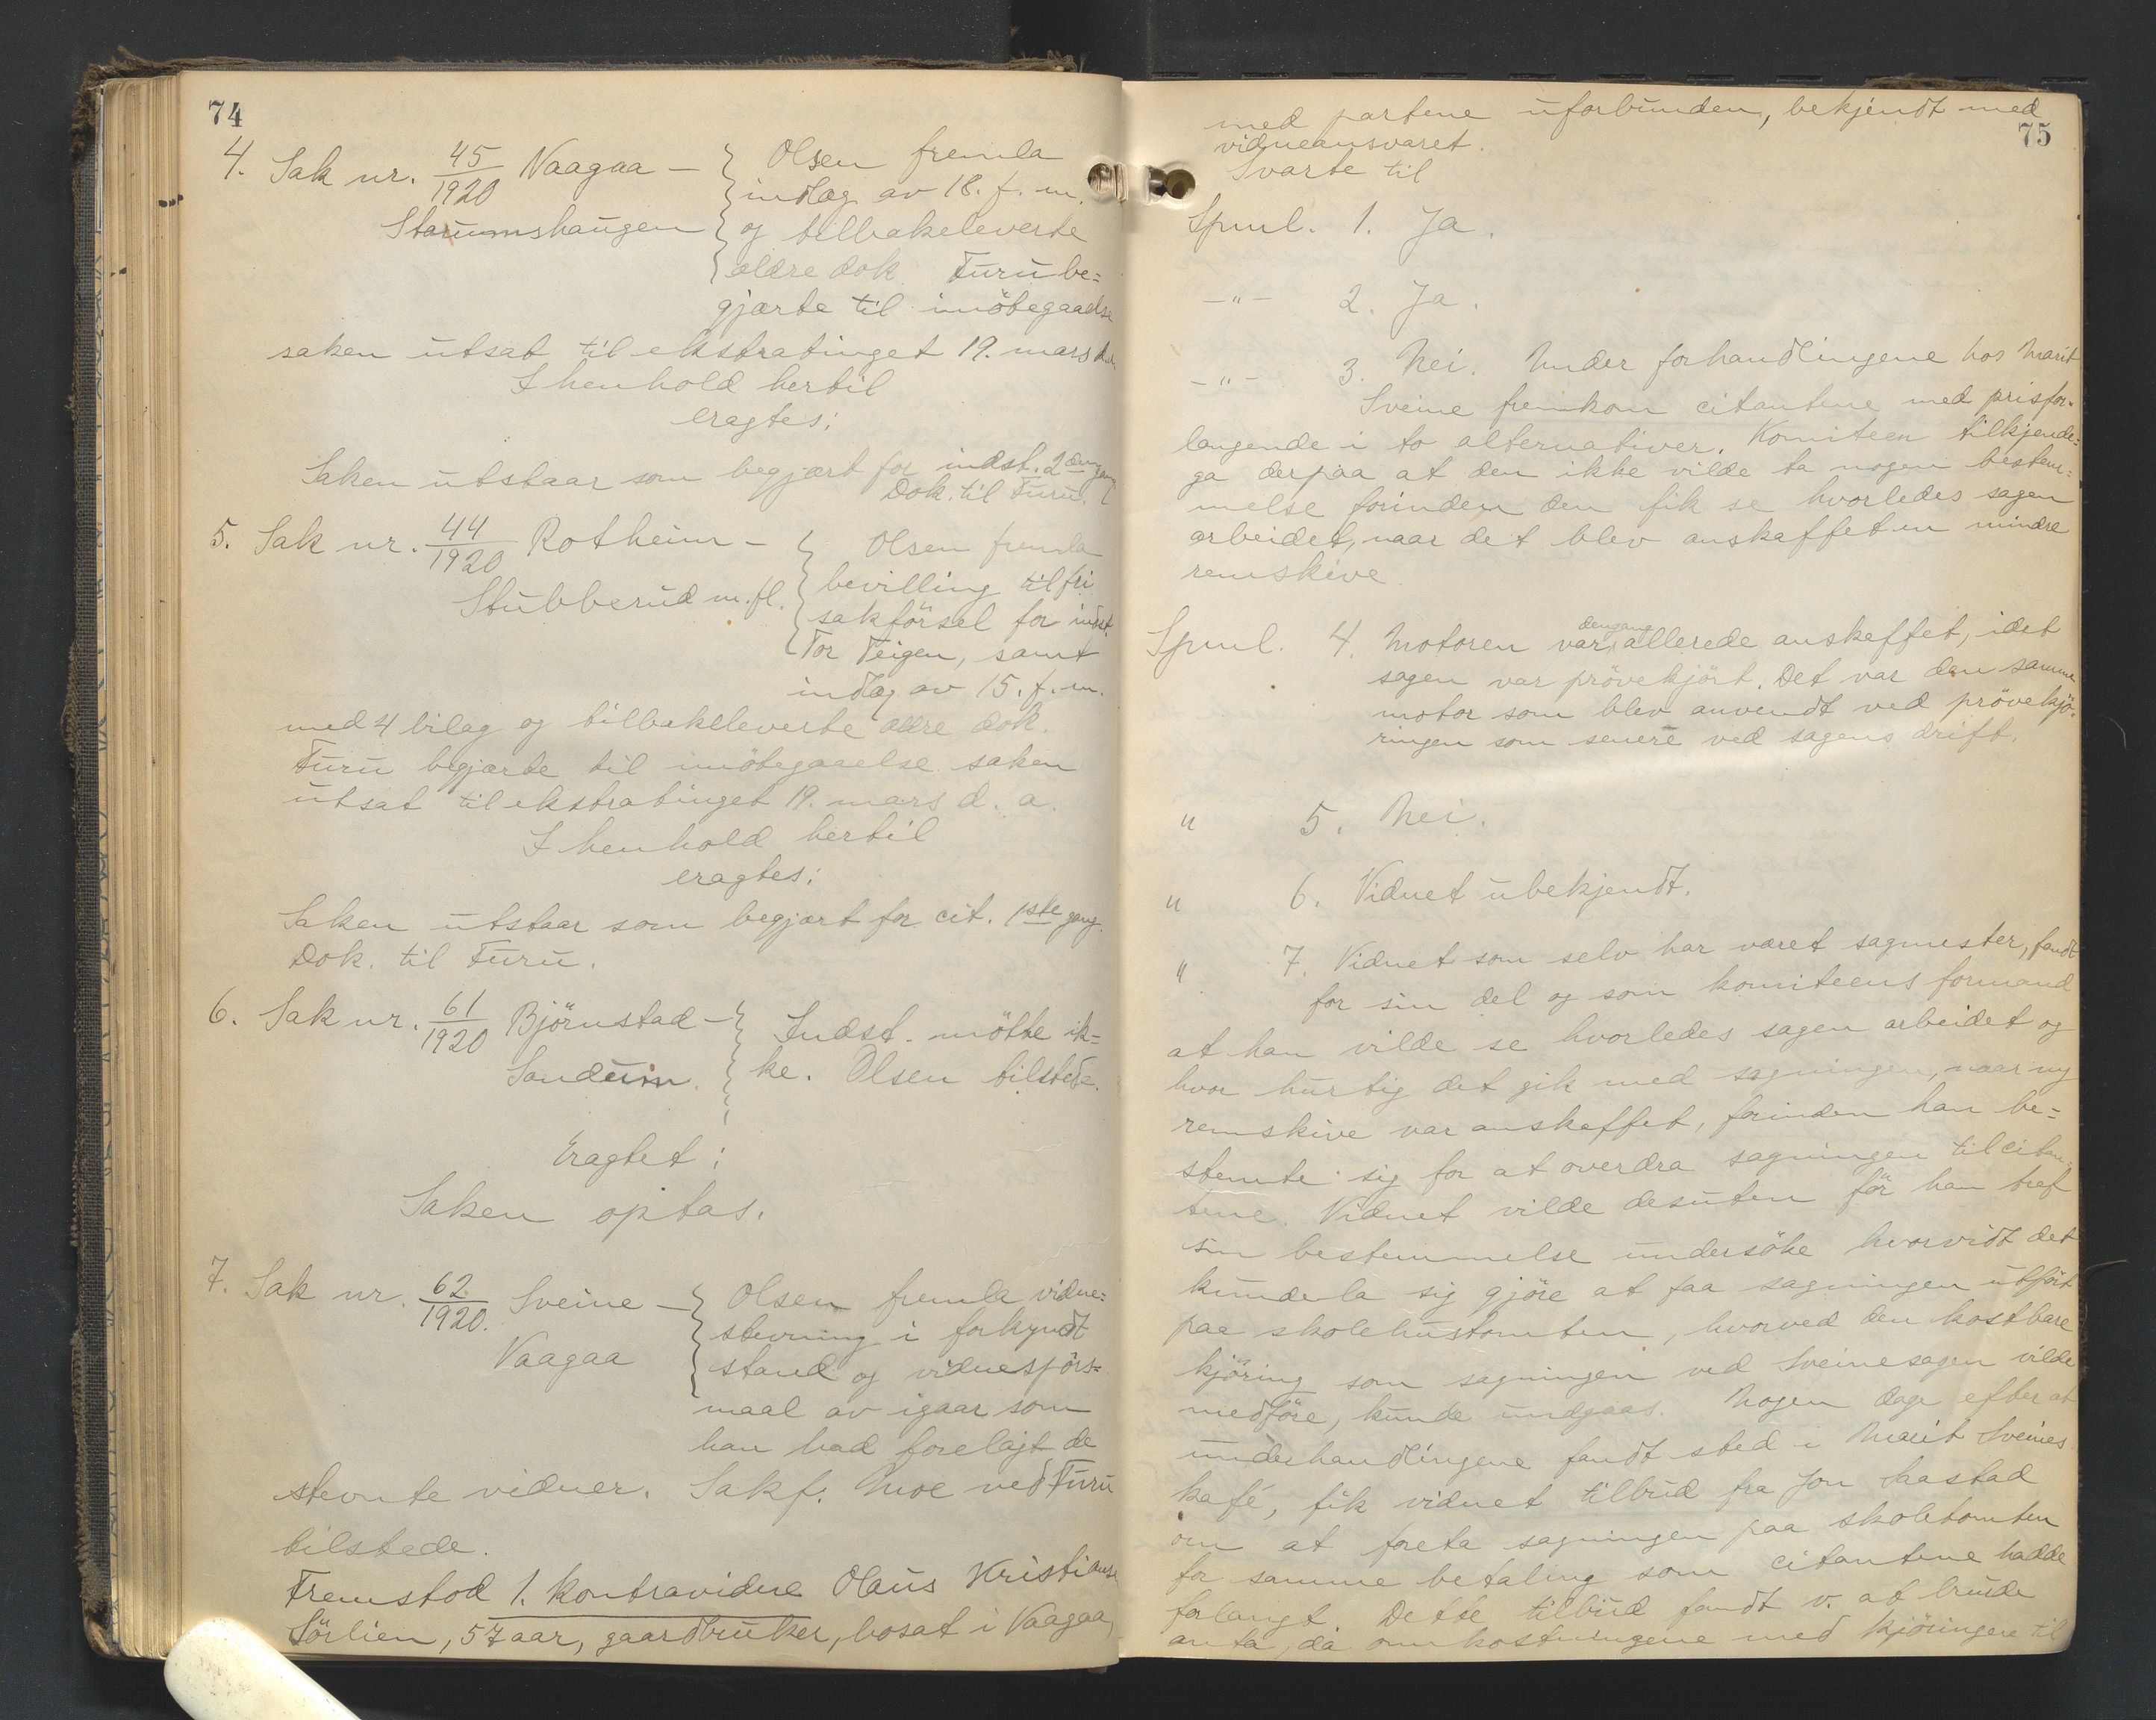 74
4. Sak nr. 45/1920 Vaagaa —
Starumshaugen
Olsen fremla
indlæg av 18. f. m.
og tilbakeleverte
ældre dok. Furu be=
gjærte til imötegaaelse
saken utsat til ekstratinget 19. mars d. a.
I henhold hertil
eragtes:
Saken utstaar som begjært for indst. 2den gang
Dok. til Furu.
5. Sak nr. 44/1920 Rotheim —
Stubberud m. fl.
Olsen fremla
bevilling til fri
sakförsel for indst.
Tor Teigen, samt
indlæg av 15. f. m.
med 4 bilag og tilbakeleverte ældre dok.
Furu begjærte til imötegaaelse saken
utsat til ekstratinget 19. mars d. a.
I henhold hertil
eragtes:
Saken utstaar som begjært for cit. 1ste gang.
Dok. til Furu.
6. Sak nr. 61/1920 Björnstad —
Sandum.
Indst. mötte ik=
ke. Olsen tilstede.
Eragtet:
Saken optas.
7. Sak nr. 62/1920. Sveine —
Vaagaa
Olsen fremla vidne=
stevning i forkyndt
stand og vidnespörs=
maal av igaar som
han had forelagt de
stevnte vidner. Sakf. Moe ved Furu
tilstede.
Fremstod 1. kontravidne Olaus Kristiansen
Sörlien, 57 aar, gaardbruker, bosat i Vaagaa,
75
med partene uforbunden, bekjendt med
vidneansvaret.
Svarte til
Spml. 1. Ja.
— " — 2. Ja.
— " — 3. Nei. Under forhandlingene hos Marit
Sveine fremkom citantene med prisfor=
langende i to alternativer. Komiteen tilkjende=
ga derpaa at den ikke vilde ta nogen bestem=
melse forinden den fik se hvorledes sagen
arbeidet, naar det blev anskaffet en mindre
remskive.
Spml. 4. Motoren var dengang allerede anskaffet, idet
sagen var prövekjört. Det var den samme
motor som blev anvendt ved prövekjö=
ringen som senere ved sagens drift.
" 5. Nei.
" 6. Vidnet ubekjendt.
" 7. Vidnet som selv har været sagmester, fandt
for sin del og som komiteens formand
at han vilde se hvorledes sagen arbeidet og
hvor hurtig det gik med sagningen, naar ny
remskive var anskaffet, forinden han be=
stemte sig for at overdra sagningen til citan=
tene. Vidnet vilde desuten för han tref
sin bestemmelse undersöke hvorvidt det
kunde la sig gjöre at faa sagningen utfört
paa skolehustomten, hvorved den kostbare
kjöring som sagningen ved Sveinesagen vilde
medföre, kunde undgaas. Nogen dage efter at
underhandlingene fandt sted i Marit Sveines
kafé, fik vidnet tilbud fra Jon Hastad
om at foreta sagningen paa skoletomten
for samme betaling som citantene hadde
forlangt. Dette tilbud fandt v. at burde
anta, da omkostningene med kjöringen til